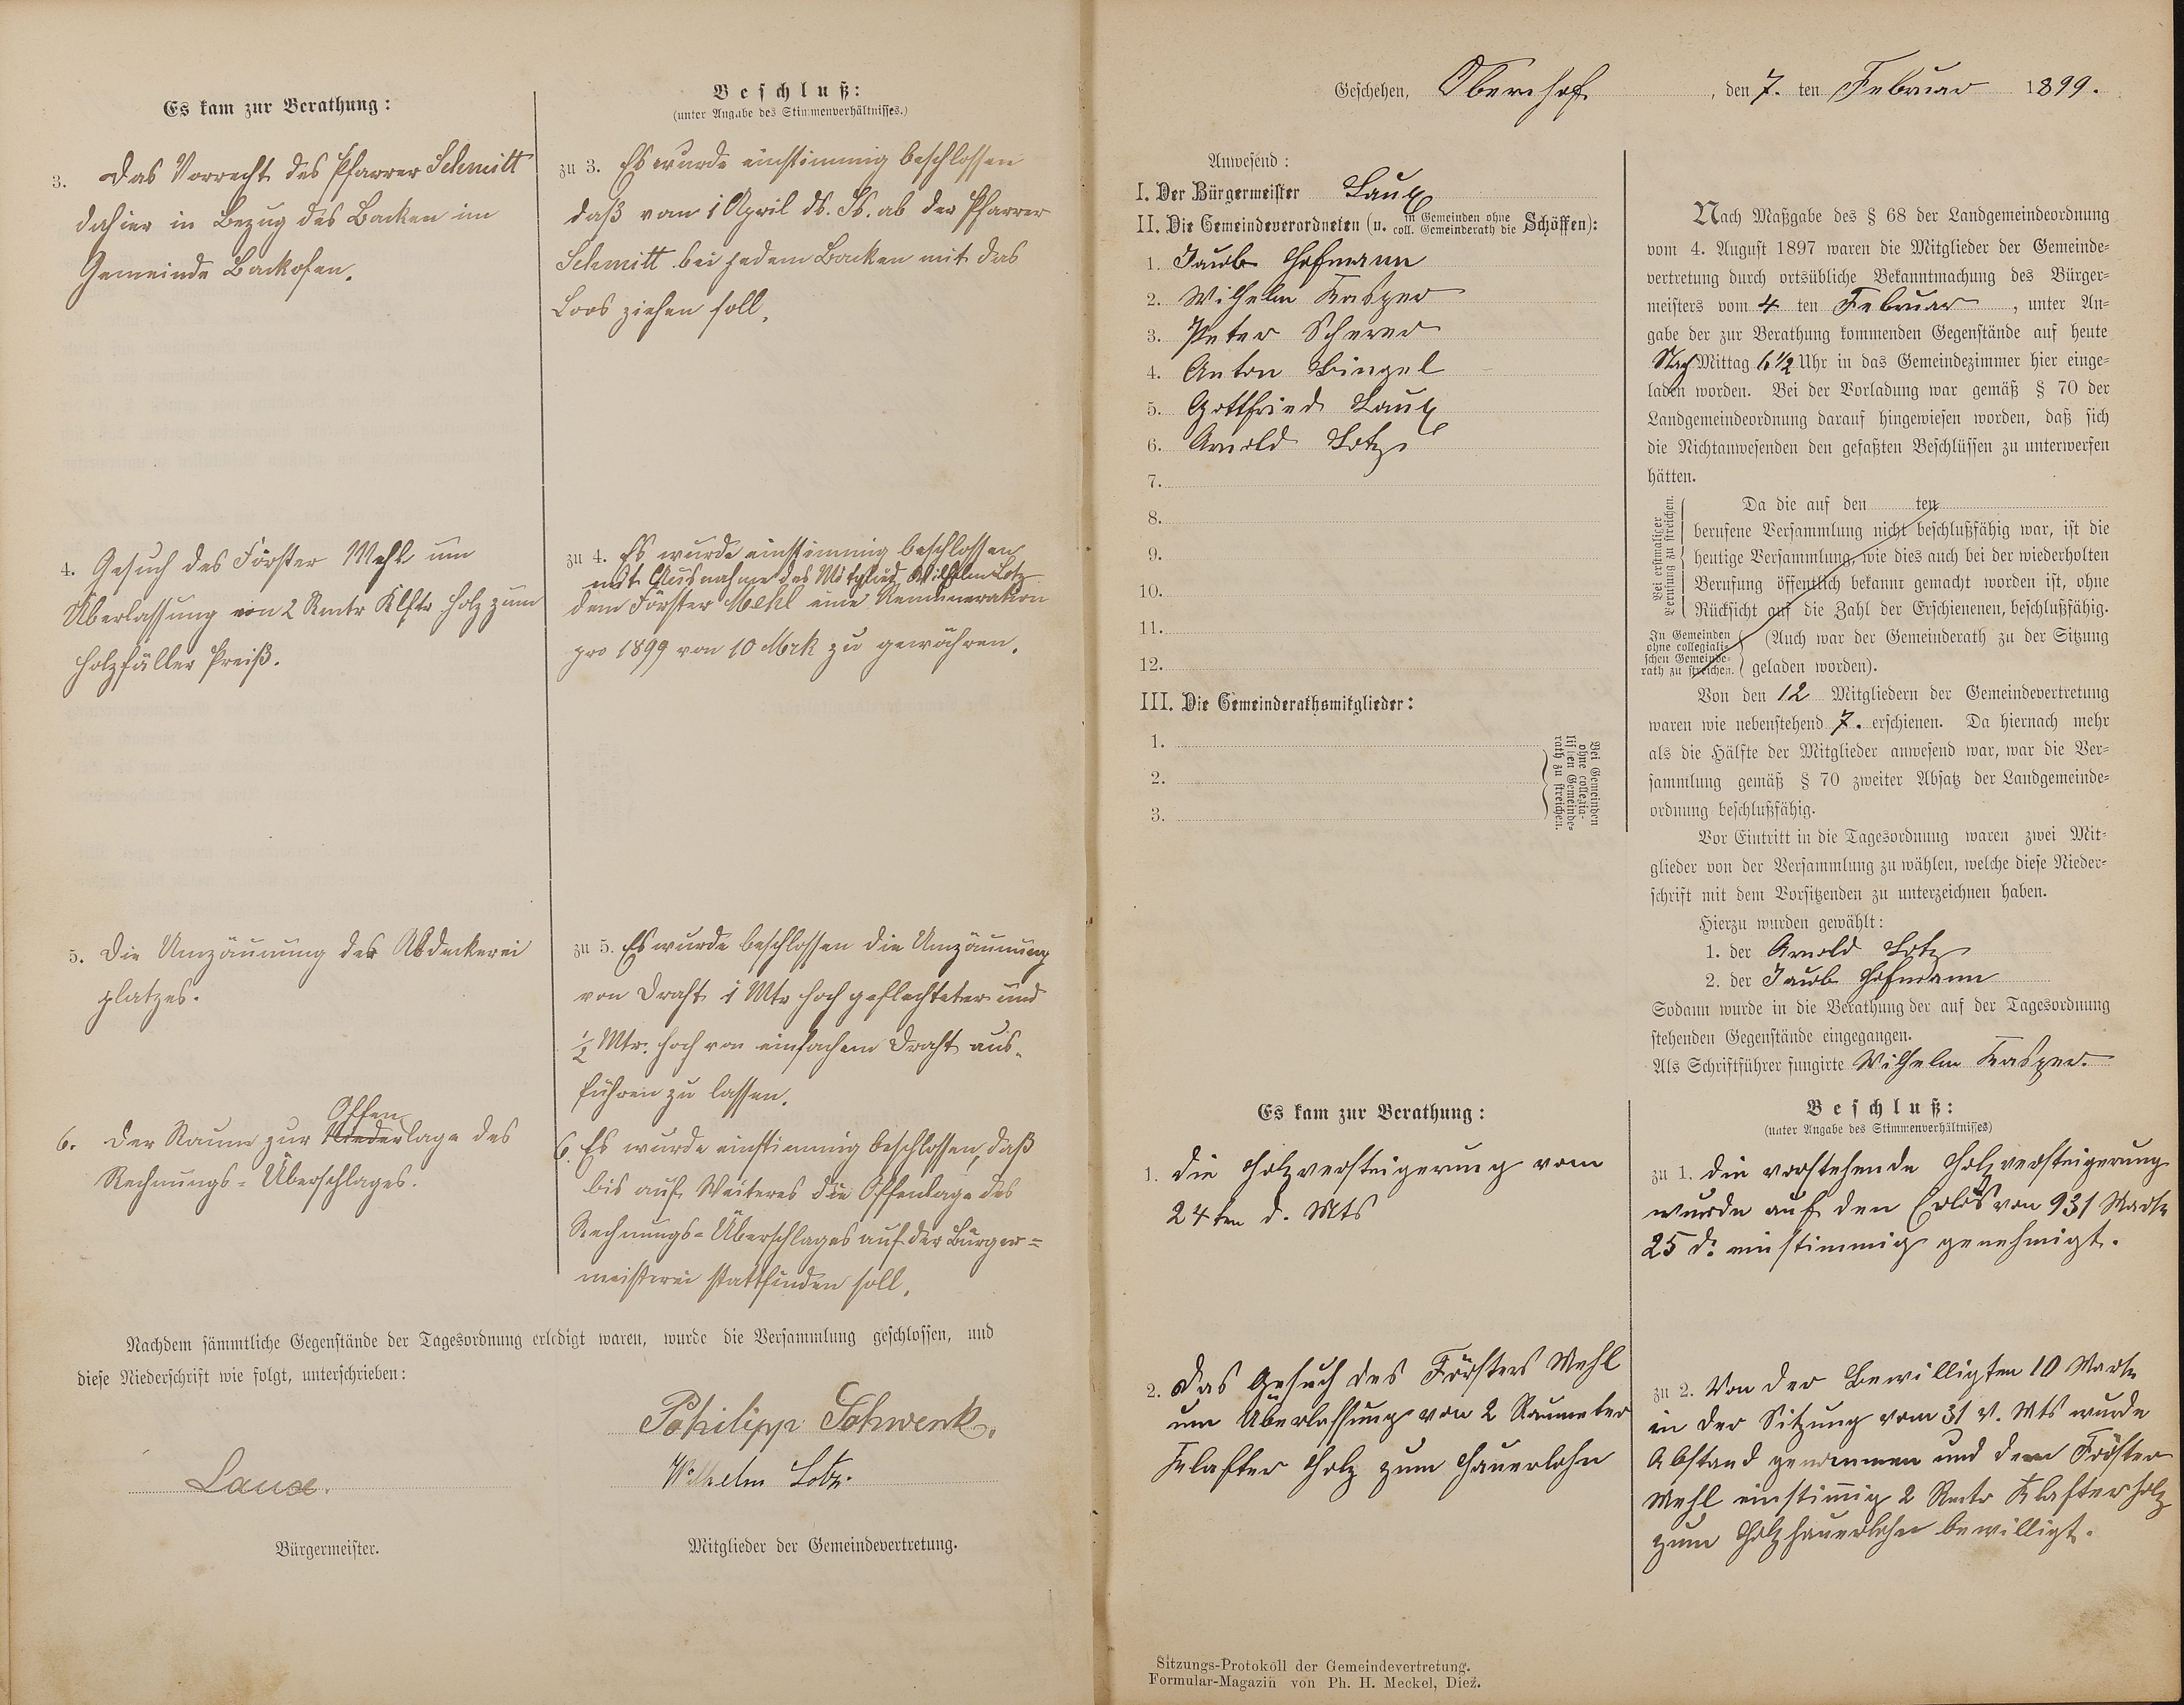 Es kam zur Berathung:
3. Das Vorrecht des Pfarrer Schmitt
dahier in Bezug des Backen im
Gemeinde Backofen.
4. Gesuch des Förster Mehl um
Überlassung von 2 Rmtr Klftr Holz zum
Holzfäller Preiß.
5. Die Umzäunung des Abdeckerei
platzes.
Offen
6. Der Raum zur Niederlage des
Rechnungs-Überschlages.
Beschluß:
(unter Angabe des Stimmenverhältnisses.)
zu 3. Es wurde einstimmig beschlossen
daß vom 1 April ds. Js. ab der Pfarrer
Schmitt bei jedem Backen mit das
Loos ziehen soll.
zu 4. Es wurde einstimmig beschlossen
mit Ausnahme des Mitglied Wilhelm Lotz
dem Förster Mehl eine Remuneration
pro 1899 von 10 Mrk zu gewähren.
zu 5. Es wurde beschlossen die Umzäunung
von Draht 1 Mtr hoch geflechteter und
1/2 Mtr. hoch von einfachem Draht aus-
führen zu lassen.
6. Es wurde einstimmig beschlossen, daß
bis auf Weiteres die Offenlage des
Rechnungs-Überschlages auf der Bürger=
meisterei stattfinden soll.
Nachdem sämmtliche Gegenstände der Tagesordnung erledigt waren, wurde die Versammlung geschlossen, und
diese Niederschrift wie folgt, unterschrieben:
Philipp Schwenk.
Laux.
Wilhelm Lotz.
Bürgermeister.
Mitglieder der Gemeindevertretung.
Geschehen, Obernhof, den 7. ten Februar 1899.
Anwesend:
I. Der Bürgermeister Laux
II. Die Gemeindeverordneten (u. in Gemeinden ohne coll. Gemeinderath die Schöffen):
1. Jacob Hofmann
2. Wilhelm Kasper
3. Peter Scherer
4. Anton Bingel
5. Gottfried Laux
6. Arnold Lotz
7.
8.
9.
10.
11.
12.
III. Die Gemeinderathsmitglieder:
1.
2.
3.
Bei Gemeinden
ohne collegia-
lischen Gemeinde-
rath zu streichen.
Nach Maßgabe des § 68 der Landgemeindeordnung
vom 4. August 1897 waren die Mitglieder der Gemeinde=
vertretung durch ortsübliche Bekanntmachung des Bürger=
meisters vom 4 ten Februar, unter An=
gabe der zur Berathung kommenden Gegenstände auf heute
Nach Mittag 6 1/2 Uhr in das Gemeindezimmer hier einge=
laden worden. Bei der Vorladung war gemäß § 70 der
Landgemeindeordnung darauf hingewiesen worden, daß sich
die Nichtanwesenden den gefaßten Beschlüssen zu unterwerfen
hätten.
Bei erstmaliger
Berufung zu streichen.
Da die auf den ten
berufene Versammlung nicht beschlußfähig war, ist die
heutige Versammlung, wie dies auch bei der wiederholten
Berufung öffentlich bekannt gemacht worden ist, ohne
Rücksicht auf die Zahl der Erschienenen, beschlußfähig.
In Gemeinden
ohne collegiali-
schen Gemeinde-
rath zu streichen.
(Auch war der Gemeinderath zu der Sitzung
geladen worden).
Von den 12 Mitgliedern der Gemeindevertretung
waren wie nebenstehend 7. erschienen. Da hiernach mehr
als die Hälfte der Mitglieder anwesend war, war die Ver=
sammlung gemäß § 70 zweiter Absatz der Landgemeinde=
ordnung beschlußfähig.
Vor Eintritt in die Tagesordnung waren zwei Mit=
glieder von der Versammlung zu wählen, welche diese Nieder=
schrift mit dem Vorsitzenden zu unterzeichnen haben.
Hierzu wurden gewählt:
1. der Arnold Lotz
2. der Jacob Hofmann
Sodann wurde in die Berathung der auf der Tagesordnung
stehenden Gegenstände eingegangen.
Als Schriftführer fungirte Wilhelm Kasper.
Es kam zur Berathung:
1. Die Holzversteigerung vom
24ten d. Mts
2. Das Gesuch des Försters Mehl
um Überlassung von 2 Raummeter
Klafter Holz zum Hauerlohn
Beschluß:
(unter Angabe des Stimmenverhältnisses)
zu 1. Die vorstehende Holzversteigerung
wurde auf den Erlös von 931 Mark
25 d. einstimmig genehmigt.
zu 2. Von der Bewilligten 10 Mark
in der Sitzung vom 31 v. Mts wurde
Abstand genommen und dem Förster
Mehl einstimig 2 Rmtr Klafterholz
zum Holzhauerlohn bewilligt.
Sitzungs-Protokoll der Gemeindevertretung.
Formular-Magazin von Ph. H. Meckel, Diez.